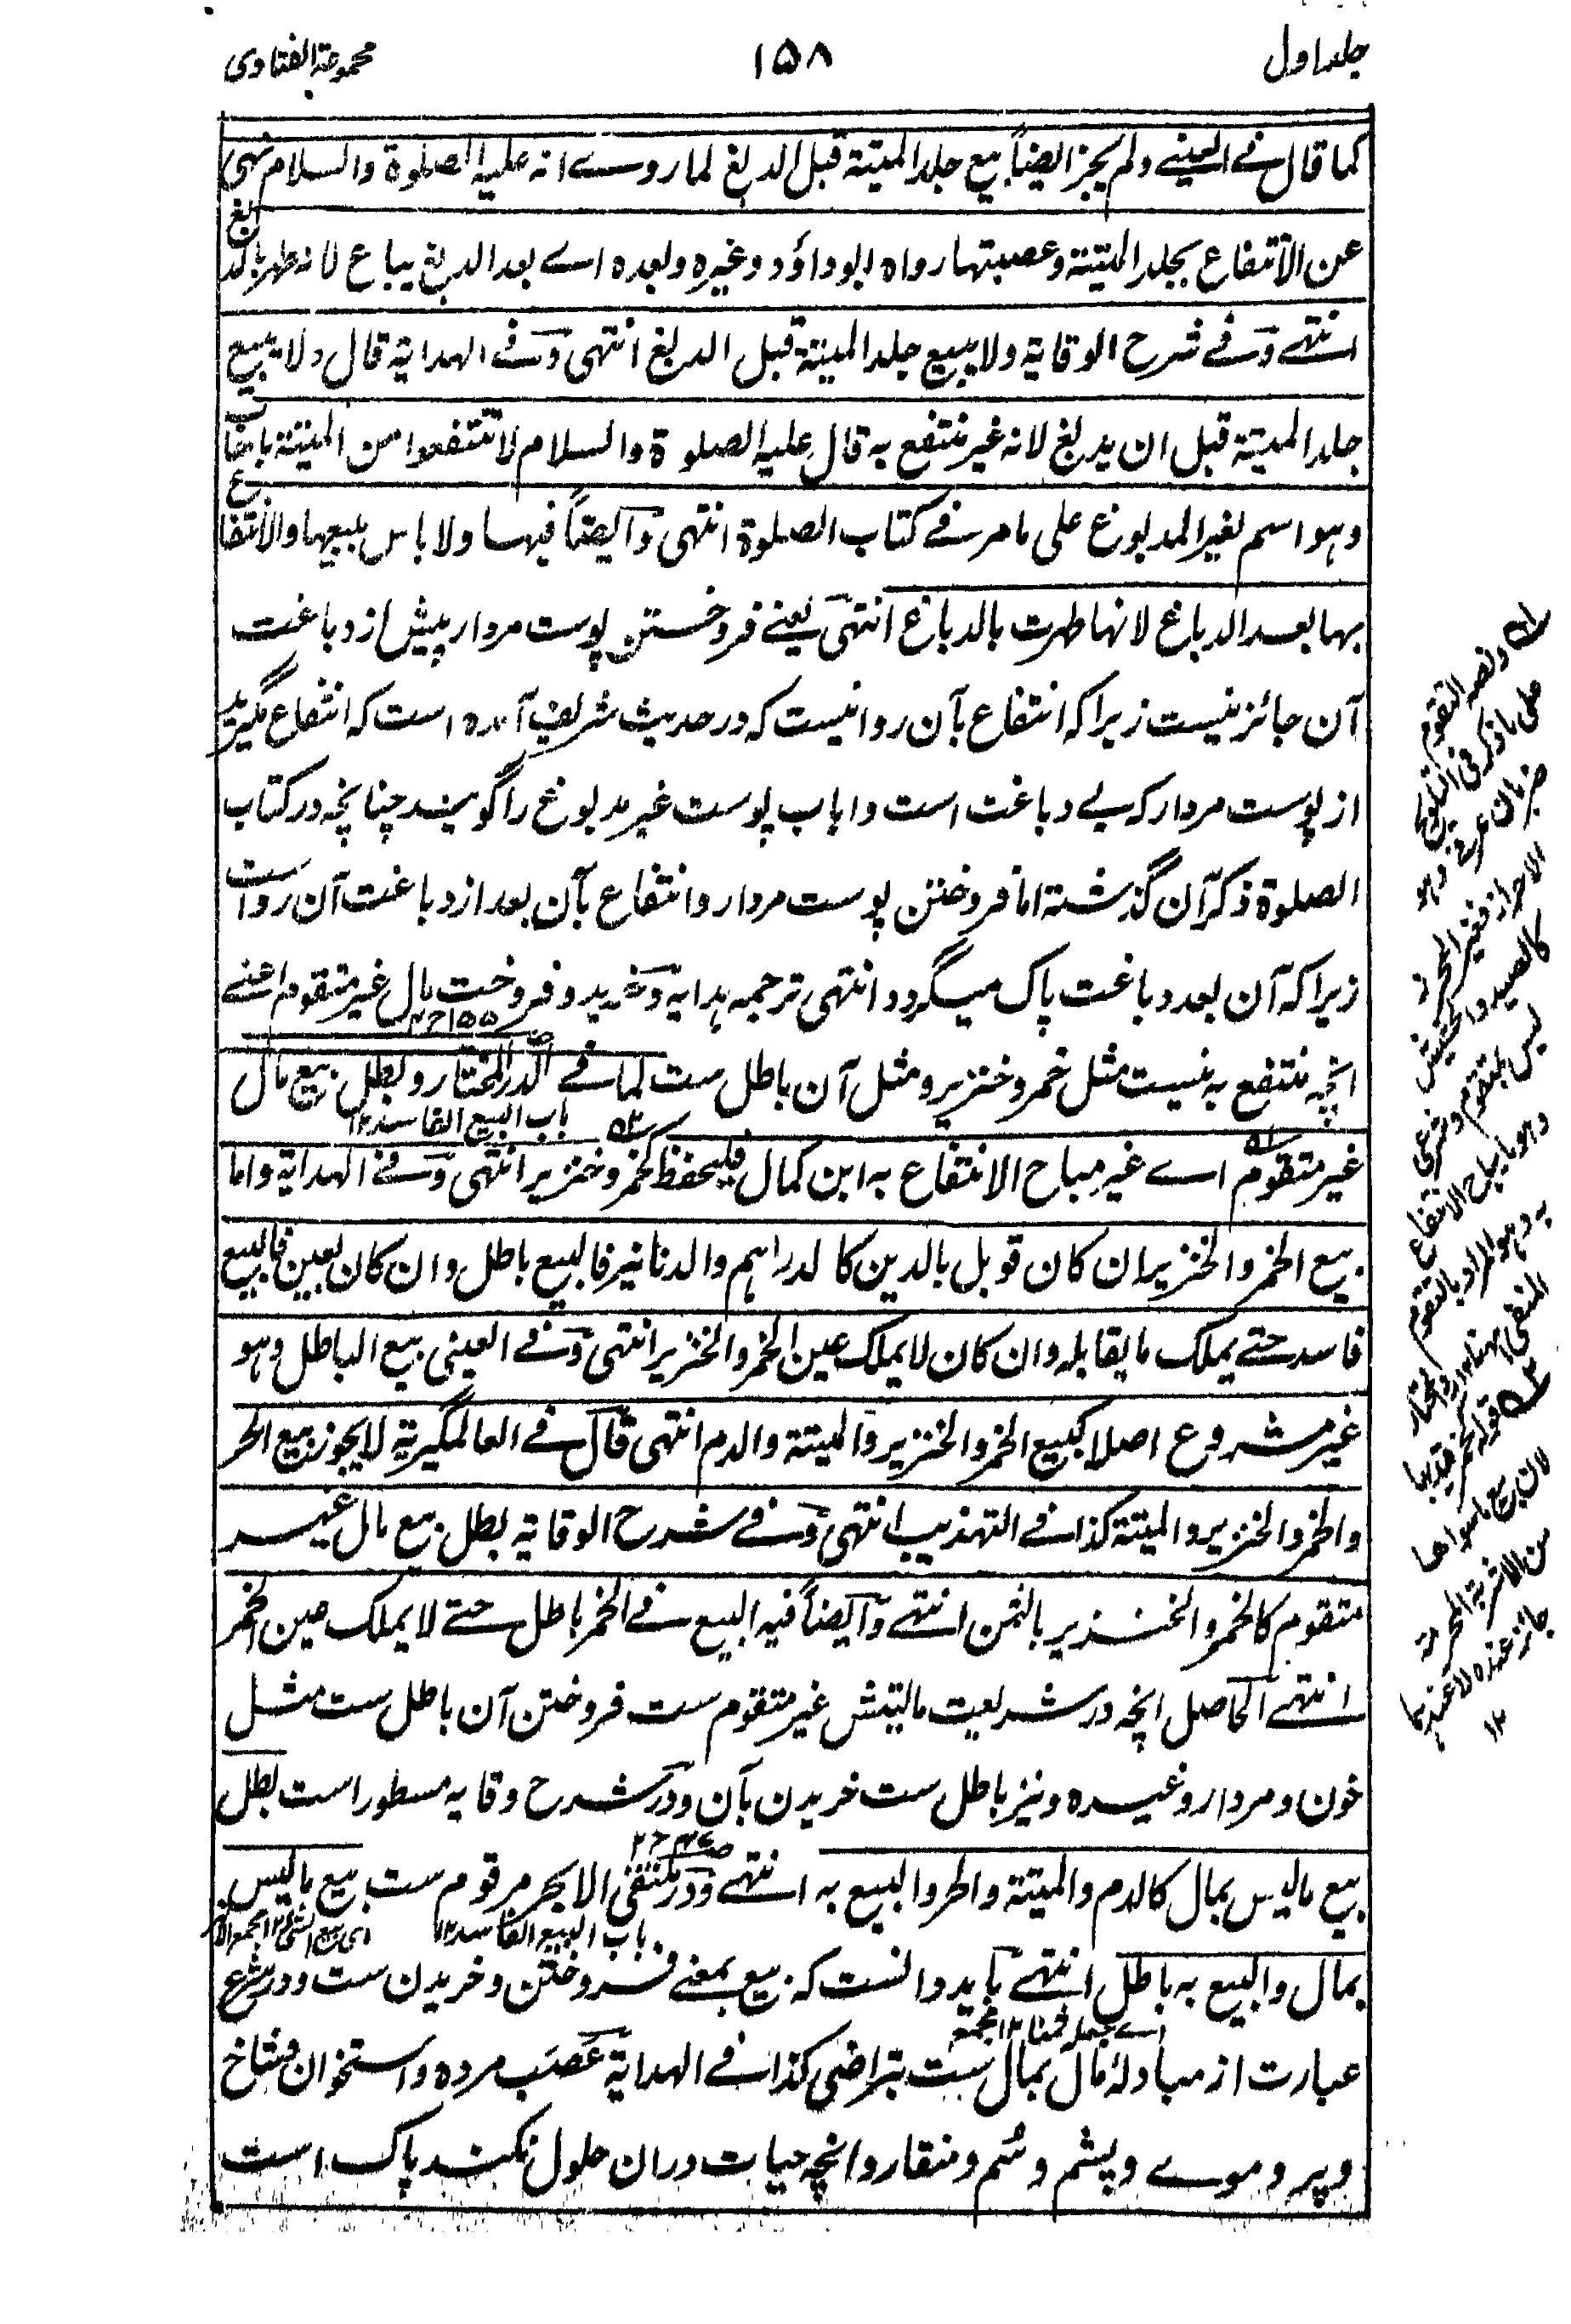 جلد اول
۱۵۸
مجموعۃ الفتاوی
کما قال فے العینے ولم یجز ایضاً بیع جلد المیتۃ قبل الدبغ لما روے انہ علیہ الصلوۃ والسلام نہی
عن الانتفاع بجلد المیتۃ وعصبتہا رواہ ابوداؤد وغیرہ وبعدہ اے بعد الدبغ یباع لانہ طہر بالدبغ
انتہے وفے شرح الوقایۃ ولا یبیع جلد المیتۃ قبل الدبغ انتہی وفے الہدایۃ قال ولا یبیع
جلد المیتۃ قبل ان یدبغ لانہ غیر منتفع بہ قال علیہ الصلوۃ والسلام لا تنتفعوا من المیتۃ باھاب
وہو اسم لغیر المدبوغ علی ما مر فے کتاب الصلوۃ انتہی وایضاً فیہا ولا باس ببیعہا والانتفاع
بہا بعد الدباغ لانہا طہرت بالدباغ انتہی یعنے فروختن پوست مردار پیش از دباغت
آن جائز نیست زیراکہ انتفاع بآن روا نیست کہ در حدیث شریف آمدہ است کہ انتفاع مگیرید
از پوست مردار کہ بے دباغت است واہاب پوست غیر مدبوغ را گویند چنانچہ در کتاب
الصلوۃ ذکر آن گذشتہ اما فروختن پوست مردار وانتفاع بآن بعد از دباغت آن روا ست
زیراکہ آن بعد دباغت پاک میگردد انتہی ترجمہ ہدایۃ وخرید وفروخت مال غیر متقوم اعنے
انچہ منتفع بہ نیست مثل خمر وخنزیر ومثل آن باطل ست لما فے الدر المختار وبطل بیع مال
باب البیع الفاسد ۱۲
غیر متقوم اے غیر مباح الانتفاع بہ ابن کمال فلیحفظ کخمر وخنزیر انتہی وفے الہدایۃ واما
بیع الخمر والخنزیر ان کان قوبل بالدین کالدراہم والدنانیر فالبیع باطل وان کان بعین فالبیع
فاسد حتے یملک ما یقابلہ وان کان لا یملک عین الخمر والخنزیر انتہی وفے العینی بیع الباطل وہو
غیر مشروع اصلا کبیع الخمر والخنزیر والمیتۃ والدم انتہی قال فے العالمگیریۃ لا یجوز بیع الحر
والخمر والخنزیر والمیتۃ کذا فے التہذیب انتہی وفے شرح الوقایۃ بطل بیع مال غیر
متقوم کالخمر والخنزیر بالثمن انتہے وایضاً فیہ البیع فے الخمر باطل حتے لا یملک عین الخمر
انتہے الحاصل انچہ در شریعت مالیتش غیر متقوم ست فروختن آن باطل ست مثل
خون ومردار وغیرہ ونیز باطل ست خریدن بآن ودر شرح وقایہ مسطور است بطل
بیع ما لیس بمال کالدم والمیتۃ والحر والبیع بہ انتہے ودر ملتقی الابحر مرقوم ست بیع ما لیس
باب البیع الفاسد ۱۲
بمال والبیع بہ باطل انتہے باید دانست کہ بیع بمعنے فروختن وخریدن ست ودر شرع
عبارت از مبادلۂ مال بمال ست بتراضی کذا فے الہدایۃ عصب مردہ واستخوان وشاخ
وپر وموے وپشم وسُم ومنقار وانچہ حیات دران حلول نکند پاک است
ونصہ التقوم
علی ما ذکر فی التلویح
ضربان عرفی وہو
الاحراز فغیر المحرز
کالصید والحشیش
لیس بمتقوم وشرعی
وہو باباحۃ الانتفاع
بہ وہو المراد بالتقوم
المنفی ہہنا رد المحتار
قولہ کخمر قید بہا
لان بیع ما سواہا
من الاشربۃ المحرمۃ
جائز عندہ لا عندہما
۱۲